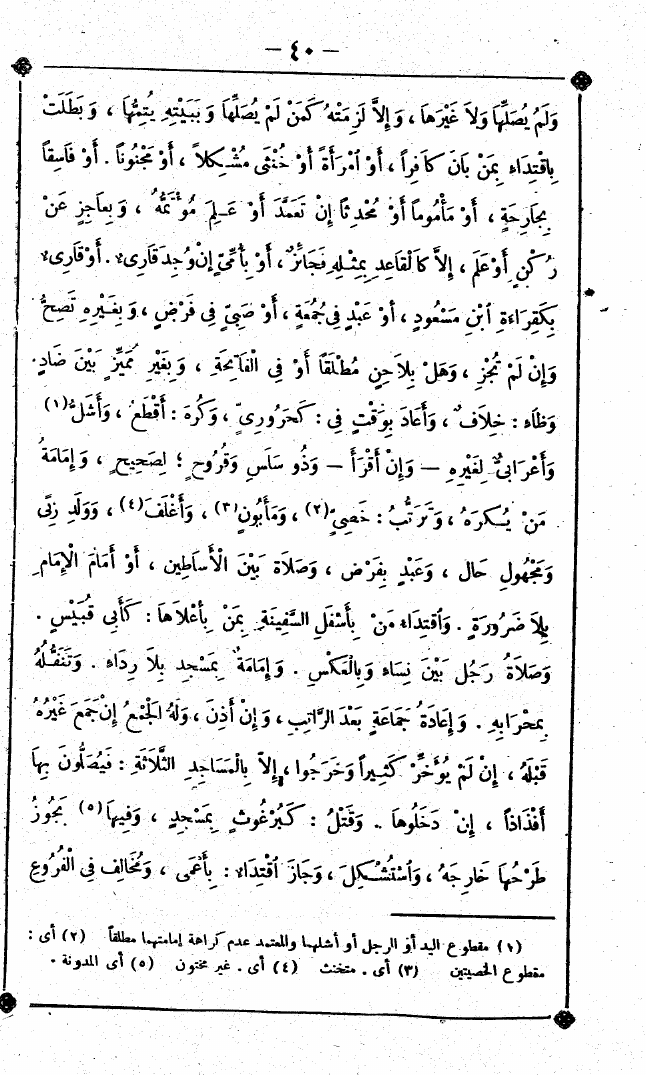 — ٤٠ —
وَلَمْ يُصَلِّهَا وَلاَ غَيْرَهَا ، وَإِلاَّ لَزِمَتْهُ كَمَنْ لَمْ يُصَلِّهَا وَبِبَيْتِهِ يُتِمُّهَا ، وَبَطَلَتْ
بِاقْتِدَاءٍ بِمَنْ بَانَ كَافِراً ، أَوْ امْرَأَةً أَوْ خُنْثَى مُشْكِلاً ، أَوْ مَجْنُوناً . أَوْ فَاسِقاً
بِجَارِحَةٍ ، أَوْ مَأْمُوماً أَوْ مُحْدِثاً إِنْ تَعَمَّدَ أَوْ عَلِمَ مُؤْتَمُّهُ ، وَبِعَاجِزٍ عَنْ
رُكْنٍ أَوْ عِلْمٍ ، إِلاَّ كَالْقَاعِدِ بِمِثْلِهِ فَجَائِزٌ ، أَوْ بِأُمِّيٍّ إِنْ وُجِدَ قَارِىءٌ . أَوْ قَارِىءٍ
بِكَقِرَاءَةِ ابْنِ مَسْعُودٍ ، أَوْ عَبْدٍ فِي جُمُعَةٍ ، أَوْ صَبِيٍّ فِي فَرْضٍ ، وَبِغَيْرِهِ تَصِحُّ
وَإِنْ لَمْ تَجُزْ ، وَهَلْ بِلاَحِنٍ مُطْلَقًا أَوْ فِي الْفَاتِحَةِ ، وَبِغَيْرِ مُمَيِّزٍ بَيْنَ ضَادٍ
وَظَاءٍ : خِلاَفٌ ، وَأَعَادَ بِوَقْتٍ فِي : كَحَرُورِيٍّ ، وَكُرِهَ : أَقْطَعُ ، وَأَشَلُّ (١)
وَأَعْرَابِيٌّ لِغَيْرِهِ — وَإِنْ أَقْرَأَ — وَذُو سَلَسٍ وَقُرُوحٍ ؛ لِصَحِيحٍ ، وَإِمَامَةُ
مَنْ يُكْرَهُ ، وَتَرَتُّبُ : خَصِيٍّ (٢) ، وَمَأْبُونٍ (٣) ، وَأَغْلَفَ (٤) ، وَوَلَدِ زِنًى
وَمَجْهُولِ حَالٍ ، وَعَبْدٍ بِفَرْضٍ ، وَصَلاَةٌ بَيْنَ الْأَسَاطِينِ ، أَوْ أَمَامَ الْإِمَامِ
بِلاَ ضَرُورَةٍ . وَاقْتِدَاءُ مَنْ بِأَسْفَلِ السَّفِينَةِ بِمَنْ بِأَعْلاَهَا : كَأَبِي قُبَيْسٍ .
وَصَلاَةُ رَجُلٍ بَيْنَ نِسَاءٍ وَبِالْعَكْسِ . وَإِمَامَةٌ بِمَسْجِدٍ بِلاَ رِدَاءٍ . وَتَنَفُّلُهُ
بِمِحْرَابِهِ . وَإِعَادَةُ جَمَاعَةٍ بَعْدَ الرَّاتِبِ ، وَإِنْ أَذِنَ ، وَلَهُ الْجَمْعُ إِنْ جَمَعَ غَيْرُهُ
قَبْلَهُ ، إِنْ لَمْ يُؤَخِّرْ كَثِيراً وَخَرَجُوا ، إِلاَّ بِالْمَسَاجِدِ الثَّلاَثَةِ : فَيُصَلُّونَ بِهَا
أَفْذَاذاً ، إِنْ دَخَلُوهَا .. وَقَتْلُ : كَبُرْغُوثٍ بِمَسْجِدٍ ، وَفِيهَا (٥) يَجُوزُ
طَرْحُهَا خَارِجَهُ ، وَاسْتُشْكِلَ ، وَجَازَ اقْتِدَاءٌ : بِأَعْمَى ، وَمُخَالِفٍ فِي الْفُرُوعِ
(١) مقطوع اليد أو الرجل أو أشلهما والمعتمد عدم كراهة إمامتهما مطلقاً (٢) أى :
مقطوع الخصيتين (٣) أى . متخنث (٤) أى . غير مختون (٥) أى المدونة .